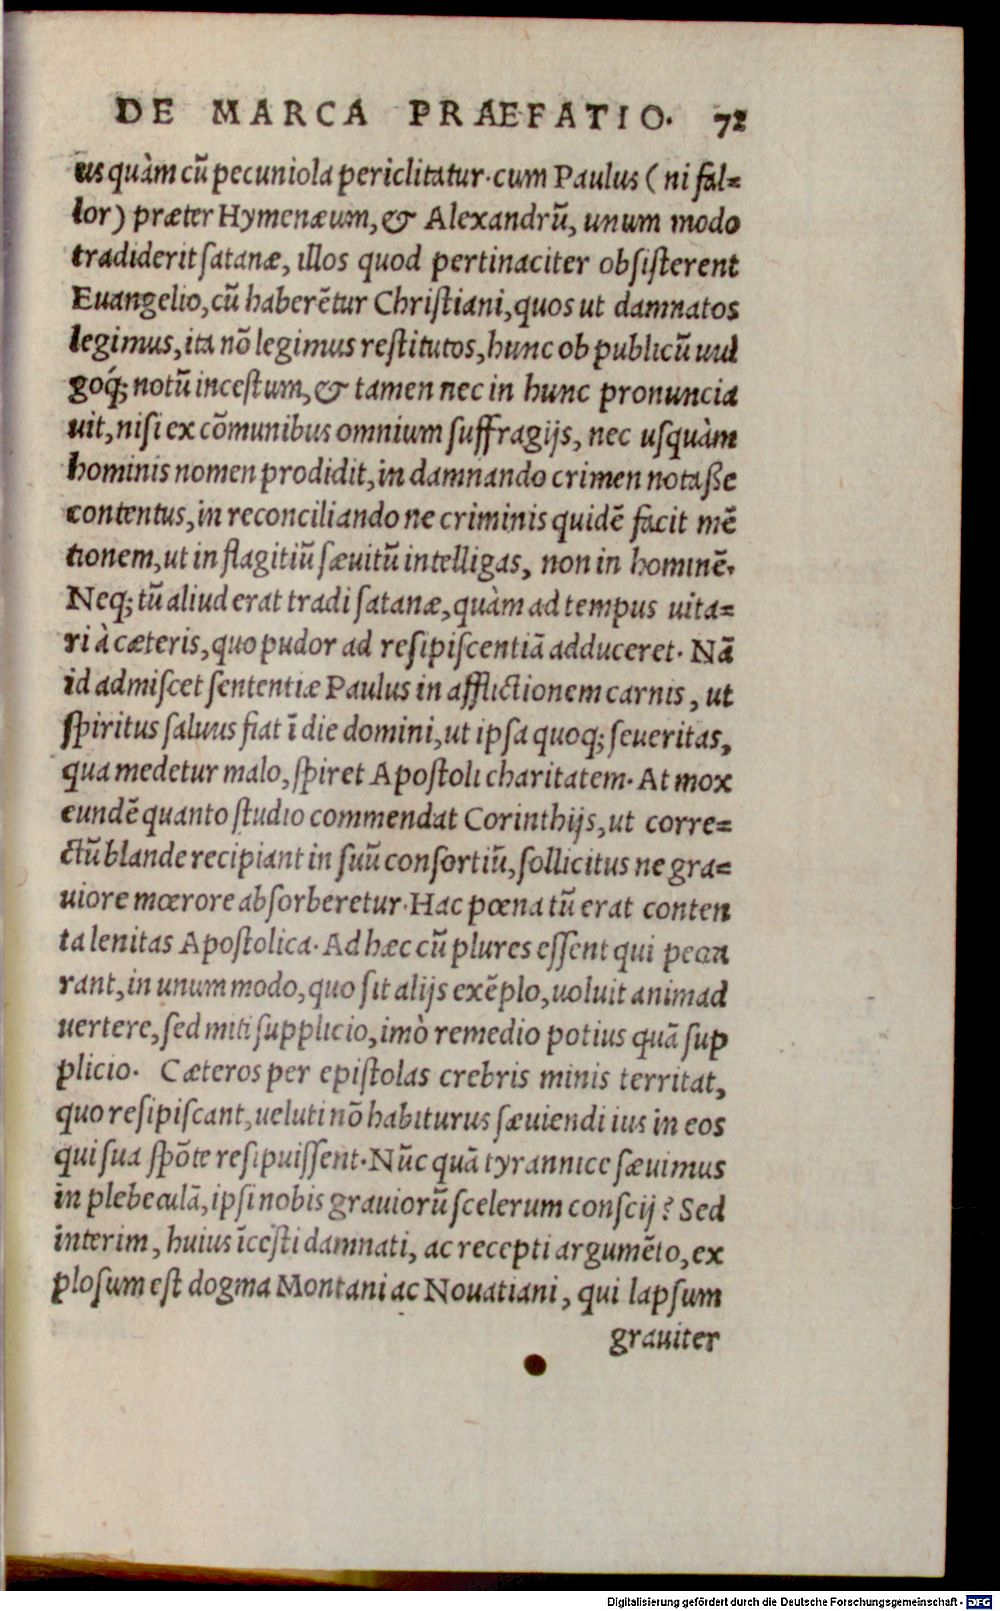 DE MARCA PRAEFATIO. 72
us quàm cũ pecuniola periclitatur. cum Paulus (ni fal=
lor) præter Hymenæum, & Alexandrũ, unum modo
tradiderit satanæ, illos quod pertinaciter obsisterent
Euangelio, cũ haberẽtur Christiani, quos ut damnatos
legimus, ita nõ legimus restitutos, hunc ob publicũ uul
goq́; notũ incestum, & tamen nec in hunc pronuncia
uit, nisi ex cõmunibus omnium suffragijs, nec usquàm
hominis nomen prodidit, in damnando crimen notaße
contentus, in reconciliando ne criminis quidẽ facit mẽ
tionem, ut in flagitiũ sæuitũ intelligas, non in hominẽ.
Neq; tũ aliud erat tradi satanæ, quàm ad tempus uita=
ri à cæteris, quo pudor ad resipiscentiã adduceret. Nã
id admiscet sententiæ Paulus in afflictionem carnis, ut
spiritus saluus fiat ĩ die domini, ut ipsa quoq; seueritas,
qua medetur malo, spiret Apostoli charitatem. At mox
eundẽ quanto studio commendat Corinthijs, ut corre=
ctũ blande recipiant in suũ consortiũ, sollicitus ne gra=
uiore mœrore absorberetur. Hac pœna tũ erat conten
ta lenitas Apostolica. Ad hæc cũ plures essent qui pecca
rant, in unum modo, quo sit alijs exẽplo, uoluit animad
uertere, sed miti supplicio, imò remedio potius quã sup
plicio. Cæteros per epistolas crebris minis territat,
quo resipiscant, ueluti nõ habiturus sæuiendi ius in eos
qui sua spõte resipuissent. Nũc quã tyrannice sæuimus
in plebeculã, ipsi nobis grauiorũ scelerum conscij? Sed
interim, huius ĩcesti damnati, ac recepti argumẽto, ex
plosum est dogma Montani ac Nouatiani, qui lapsum
grauiter
Digitalisierung gefördert durch die Deutsche Forschungsgemeinschaft - DFG